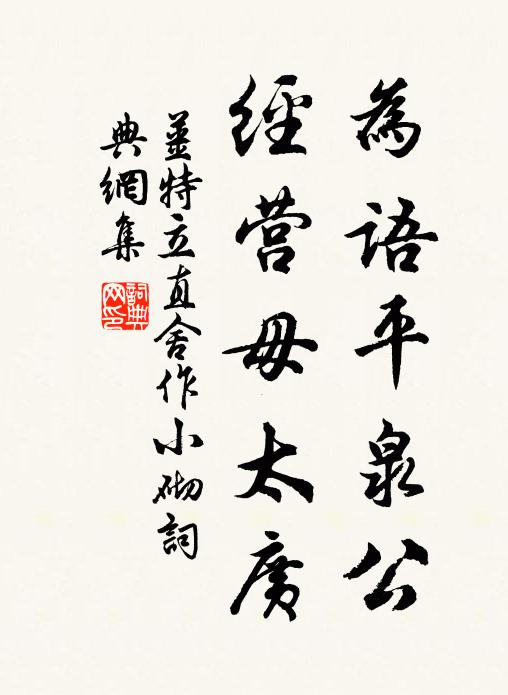 為語平泉公
經营毋太廣
姜特立直舍作小砌詞
典網集
詞典
网印